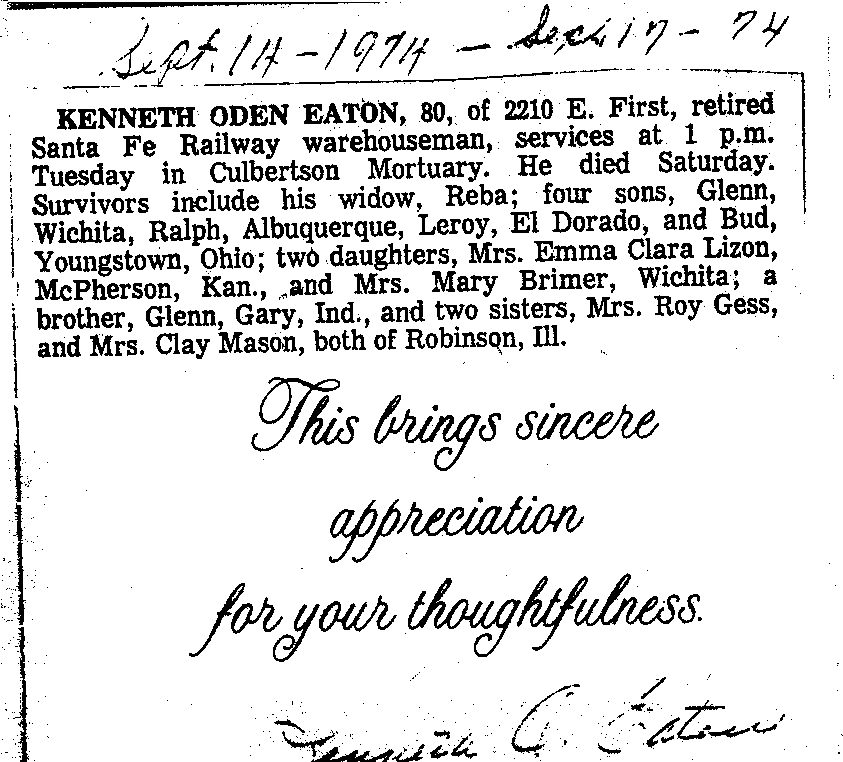 Sept. 14 - 1974 - Sept 17 - 74
KENNETH ODEN EATON, 80, of 2210 E. First, retired
Santa Fe Railway warehouseman, services at 1 p.m.
Tuesday in Culbertson Mortuary. He died Saturday.
Survivors include his widow, Reba; four sons, Glenn,
Wichita, Ralph, Albuquerque, Leroy, El Dorado, and Bud,
Youngstown, Ohio; two daughters, Mrs. Emma Clara Lizon,
McPherson, Kan., and Mrs. Mary Brimer, Wichita; a
brother, Glenn, Gary, Ind., and two sisters, Mrs. Roy Gess,
and Mrs. Clay Mason, both of Robinson, Ill.
This brings sincere
appreciation
for your thoughtfulness.
Kenneth O. Eaton